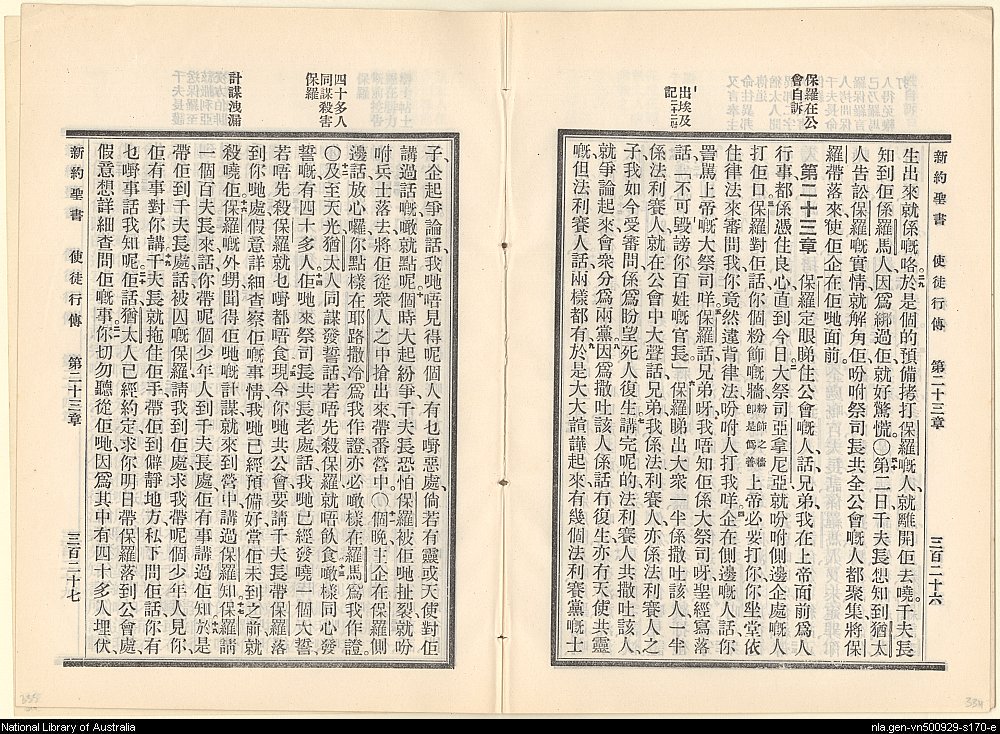 新約聖書 使徒行傳 第二十三章 三百二十六
生出來就係嘅咯於是個的預備拷打保羅嘅人就離開佢去嘵千夫長
知到佢係羅馬人因爲綁過佢就好驚慌〇第二日千夫長想知到猶太
人告訟保羅嘅實情就解角佢吩咐祭司長共全公會嘅人都聚集將保
羅帶落來使佢企在佢哋面前
第二十三章 保羅定眼睇住公會嘅人話兄弟我在上帝面前爲人
行事都係憑住良心直到今日大祭司亞拿尼亞就吩咐側邊企處嘅人
打佢口保羅對佢話你個粉飾嘅牆粉飾之牆即是僞善上帝必要打你你坐堂依
住律法來審問我你竟然違背律法吩咐人打我咩企在側邊嘅人話你
詈罵上帝嘅大祭司咩保羅話兄弟呀我唔知佢係大祭司呀聖經寫落
話「不可毀謗你百姓嘅官長」保羅睇出大衆一半係撒吐該人一半
係法利賽人就在公會中大聲話兄弟我係法利賽人亦係法利賽人之
子我如今受審問係爲盼望死人復生講完呢的法利賽人共撒吐該人
就爭論起來會衆分爲兩黨因爲撒吐該人係話冇復生亦冇天使共靈
嘅但法利賽人話兩樣都有於是大大諠譁起來有幾個法利賽黨嘅士
保羅在公
會自訴
出埃及
記
子企起爭論話我哋唔見得呢個人有乜嘢惡處倘若有靈或天使對佢
講過話嘅噉就點呢個時大起紛爭千夫長恐怕保羅被佢哋扯裂就吩
咐兵士落去將佢從衆人之中搶出來帶番營中〇個晚主企在保羅側
邊話放心囉你點樣在耶路撒冷爲我作證亦必噉樣在羅馬爲我作證
〇及至天光猶太人同謀發誓話若唔先殺保羅就唔飲食噉樣同心發
誓嘅有四十多人佢哋來祭司長共長老處話我哋已經發嘵一個大誓
若唔先殺保羅就乜嘢都唔食現今你哋共公會要請千夫長帶保羅落
到你哋處假意詳細查察佢嘅事情我哋已經預備好當佢未到之前就
殺嘵佢保羅嘅外甥聞得佢哋嘅計謀就來到營中講過保羅知保羅請
一個百夫長來話你帶呢個少年人到千夫長處佢有事講過佢知於是
帶佢到千夫長處話被囚嘅保羅請我到佢處求我帶呢個少年人見你
佢有事對你講千夫長就拖住佢手帶佢到僻靜地方私下問佢話你有
乜嘢事話我知呢佢話猶太人已經約定求你明日帶保羅落到公會處
假意想詳細查問佢嘅事你切勿聽從佢哋因爲其中有四十多人埋伏
新約聖書 使徒行傳 第二十三章 三百二十七
四十多人
同謀殺害
保羅
計謀洩漏
334
National Library of Australia
nla.gen-vn500929-s170-e